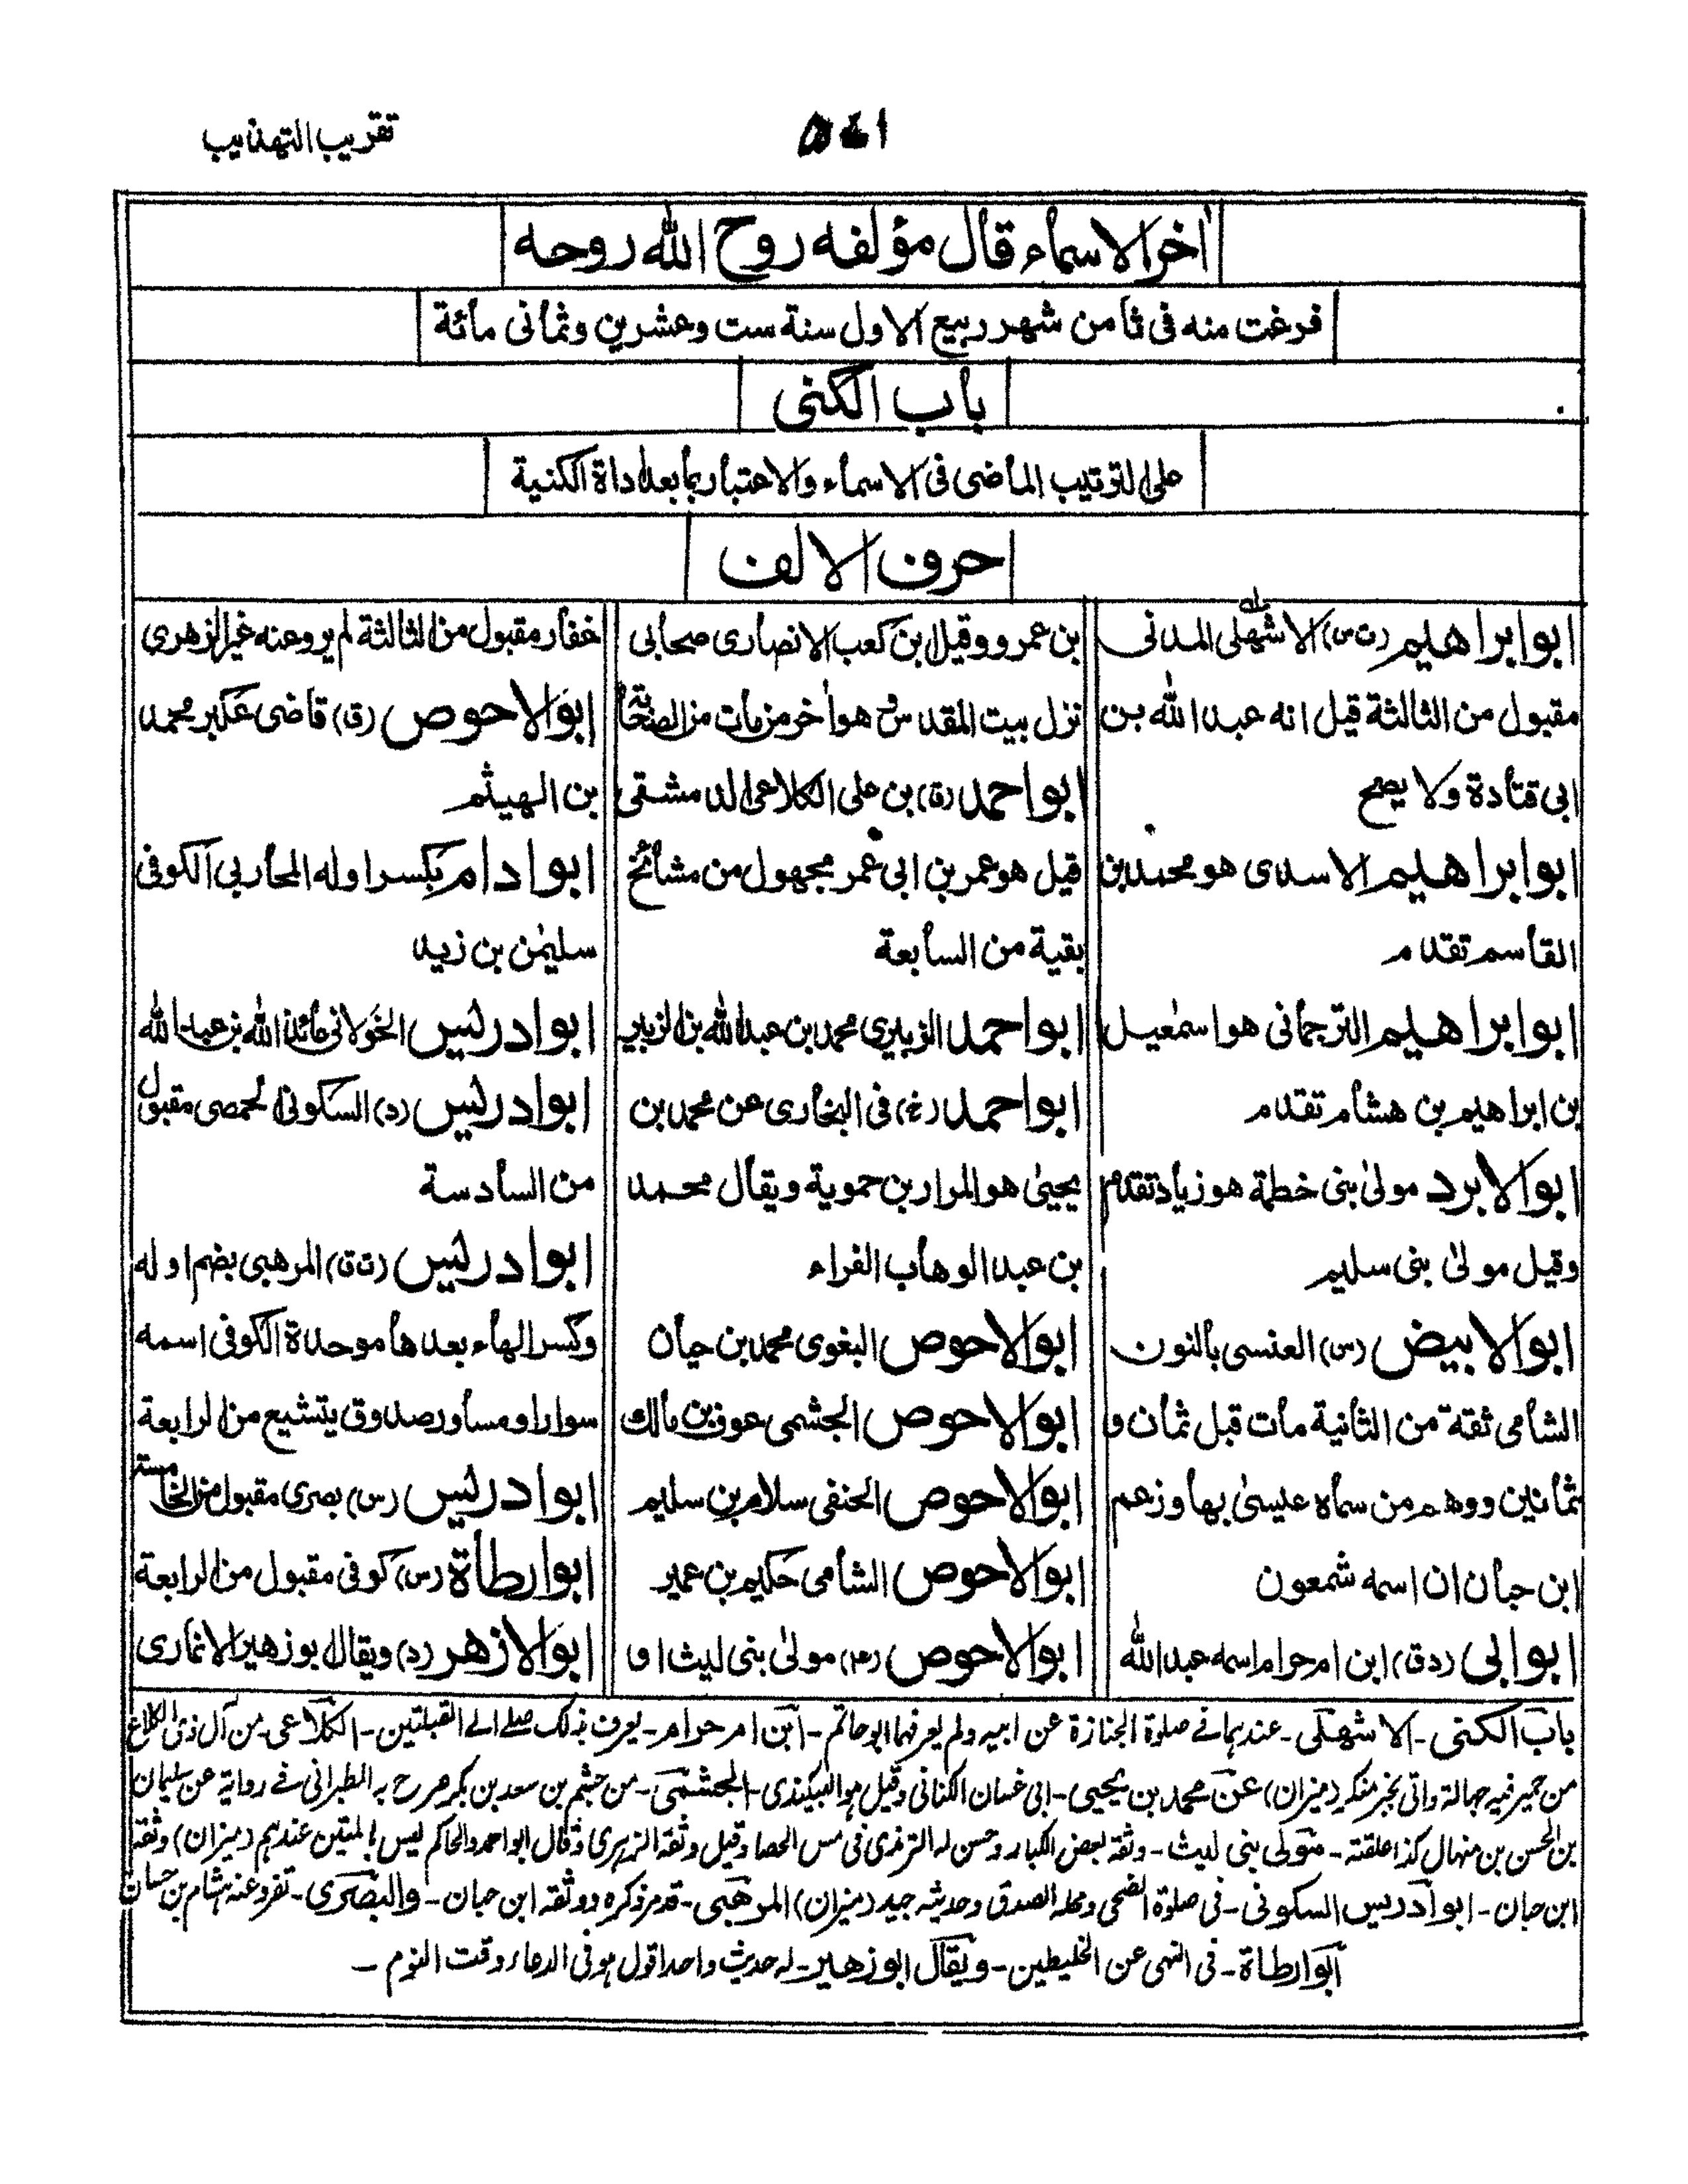 تقريب التهذيب
اخر الاسماء قال مؤلفه روح الله روحه
فرغت منه فى ثامن شهر ربيع الاول سنة ست وعشرين وثمانى مائة
باب الكنى
على الترتيب الماضى فى الاسماء والاعتبار بما بعد اداة الكنية
حرف الالف
ابو ابراهيم (ت س) الاشهلى المدنى
مقبول من الثالثة قيل انه عبد الله بن
ابى قتادة ولا يصح
ابو ابراهيم الاسدى هو محمد بن
القاسم تقدم
ابو ابراهيم الترجمانى هو اسمٰعيل
بن ابراهيم بن هشام تقدم
ابو الابرد مولىٰ بنى خطمة هو زياد تقدم
وقيل مولىٰ بنى سليم
ابو الابيض (س) العنسى بالنون
الشامى ثقة من الثانية مات قبل ثمان و
ثمانين ووهم من سماه عيسىٰ بها وزعم
ابن حبان ان اسمه شمعون
ابو ابى (د ق) ابن ام حرام اسمه عبد الله
بن عمرو وقيل بن كعب الانصارى صحابى
نزل بيت المقدس وهو اٰخر من مات من الصحابة
ابو احمد (ق) بن على الكلاعى الدمشقى
قيل هو عمر بن ابى عمر مجهول من مشائخ
بقية من السابعة
ابو احمد الزبيرى محمد بن عبد الله بن الزبير
ابو احمد (خ) فى البخارى عن محمد بن
يحيىٰ هو المرار بن حموية ويقال محمد
بن عبد الوهاب الفراء
ابو الاحوص البغوى محمد بن حيان
ابو الاحوص الجشمى عوف بن مالك
ابو الاحوص الحنفى سلام بن سليم
ابو الاحوص الشامى حكيم بن عمير
ابو الاحوص (عه) مولىٰ بنى ليث او
غفار مقبول من الثالثة لم يرو عنه غير الزهرى
ابو الاحوص (ق) قاضى عكبر محمد
بن الهيثم
ابو ادام بكسر اوله المحاربى الكوفى
سليمٰن بن زيد
ابو ادريس الخولانى عائذ الله بن عبد الله
ابو ادريس (د) السكونى الحمصى مقبول
من السادسة
ابو ادريس (ت ق) المرهبى بضم اوله
وكسر الهاء بعدها موحدة الكوفى اسمه
سوار او مساور صدوق يتشيع من الرابعة
ابو ادريس (س) بصرى مقبول من الخامسة
ابو ارطاة (س) كوفى مقبول من الرابعة
ابو الازهر (د) ويقال ابو زهير الانمارى
باب الكنى - الاشهلى - عندهما فے صلوة الجنازة عن ابيه ولم يعرفهما ابو حاتم - ابن ام حرام - يعرف بذلك صلے الے القبلتين - الكلاعى - من آل ذى الكلاع
من حمير فيه جهالة واتى بخبر منكر (ميزان) عن محمد بن يحيى - ابى غسان الكنانى وقيل هو البيكندى - الجشمى - من جشم بن سعد بن بكر صرح به الطبرانى فے رواية عن سليمان
بن الحسن بن منهال كذا علقته - مولى بنى ليث - وثقه بعض الكبار وحسن له الترمذى فى مس الحصا وقيل وثقه الزهرى وقال ابو احمد والحاكم ليس بالمتين عندهم (ميزان) وثقه
ابن حبان - ابو ادريس السكونى - فى صلوة الضحى ومحله الصدق وحديثه جيد (ميزان) المرهبى - قدم ذكره ووثقه ابن حبان - والبصرى - تفرد عنه هشام بن حسان
ابو ارطاة - فى النهى عن الخليطين - ويقال ابو زهير - له حديث واحد اقول هو فى الدعاء وقت النوم -